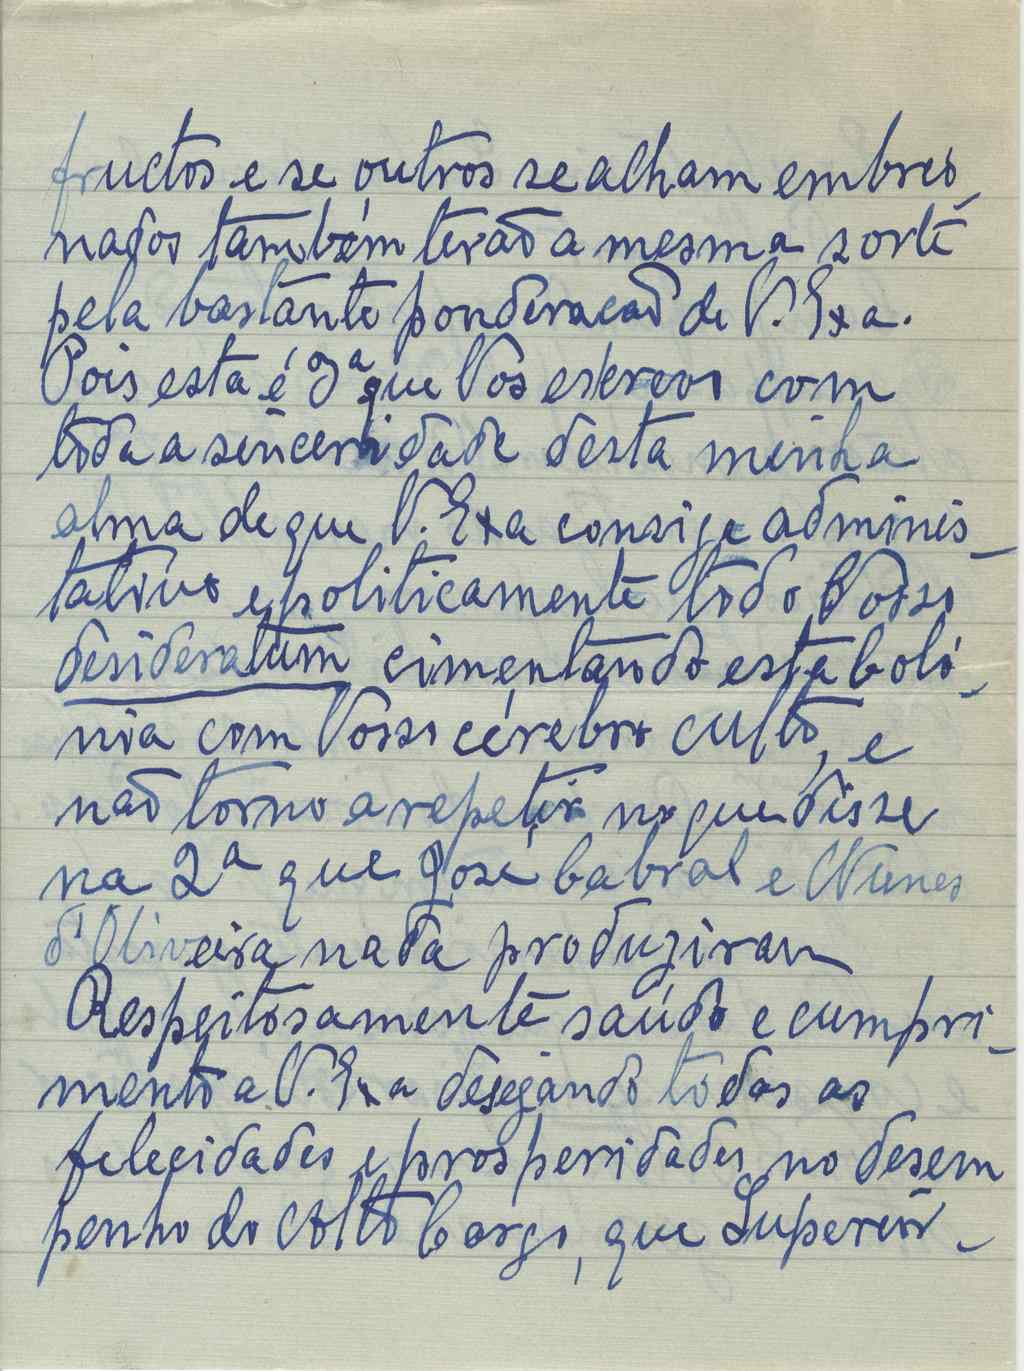 fructos e se outros se alham embrio_
nados também terão a mesma sorte
pela bastante ponderacao de V. Exa.
Pois esta é 3ª que Vos escrevo com
toda a sinceridade desta minha
alma de que V. Exa consige adminis_
tativo e politicamente todo Vosso
desideratum cimentando esta Coló_
nia com Vosso cérebro culto, e
não torno a repetir no que disse
na 2ª que José Cabral e Nunes
d'Oliveira nada produziram
Respeitosamente saúdo e cumpri_
mento a V. Exa desejando todas as
felecidades e prosperidades no desem
penho do Alto Cargo, que Superior_